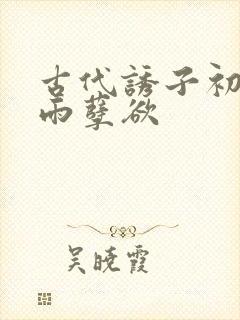 古代誘子初
雨孽欲
吴晓霞